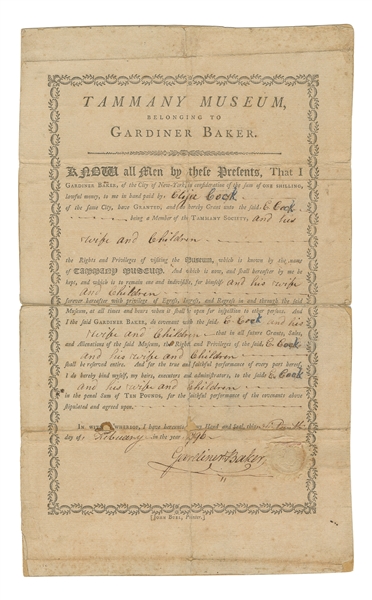 TAMMANY MUSEUM,
BELONGING TO
GARDINER BAKER.
KNOW all Men by these Presents, That I
GARDINER BAKER, of the City of New-York, in consideration of the sum of ONE SHILLING,
lawful money, to me in hand paid by Cook
of the same City, have GRANTED, and hereby Grant unto the said C Cook
being a Member of the TAMMANY SOCIETY, and his
wife and Children
the Rights and Privileges of visiting the Museum, which is known by the name
of TAMMANY MUSEUM. And which is now, and shall hereafter by me be
kept, and which is to remain one and indivisible, for himself and his wife
and Children
forever hereafter with privilege of Egress, Regress, and in and through the said
Museum, at all times and hours when it shall be open for inspection to other persons. And
I the said GARDINER BAKER, do covenant with the said C Cook and his
wife and Children that in all future Changes, Sales,
and Alienations of the said Museum, the Right and Privileges of the said C. Cook
and his wife and Children
shall be reserved entire. And for the true and faithful performance of every part hereof,
I do hereby bind myself, my heirs, executors and administrators, to the said C Cook
and his wife and Children
in the penal Sum of TEN POUNDS, for the faithful performance of the covenants above
stipulated and agreed upon.
IN WITNESS WHEREOF, I have hereunto set my Hand and Seal, this
day of February in the year 179
Gardiner Baker